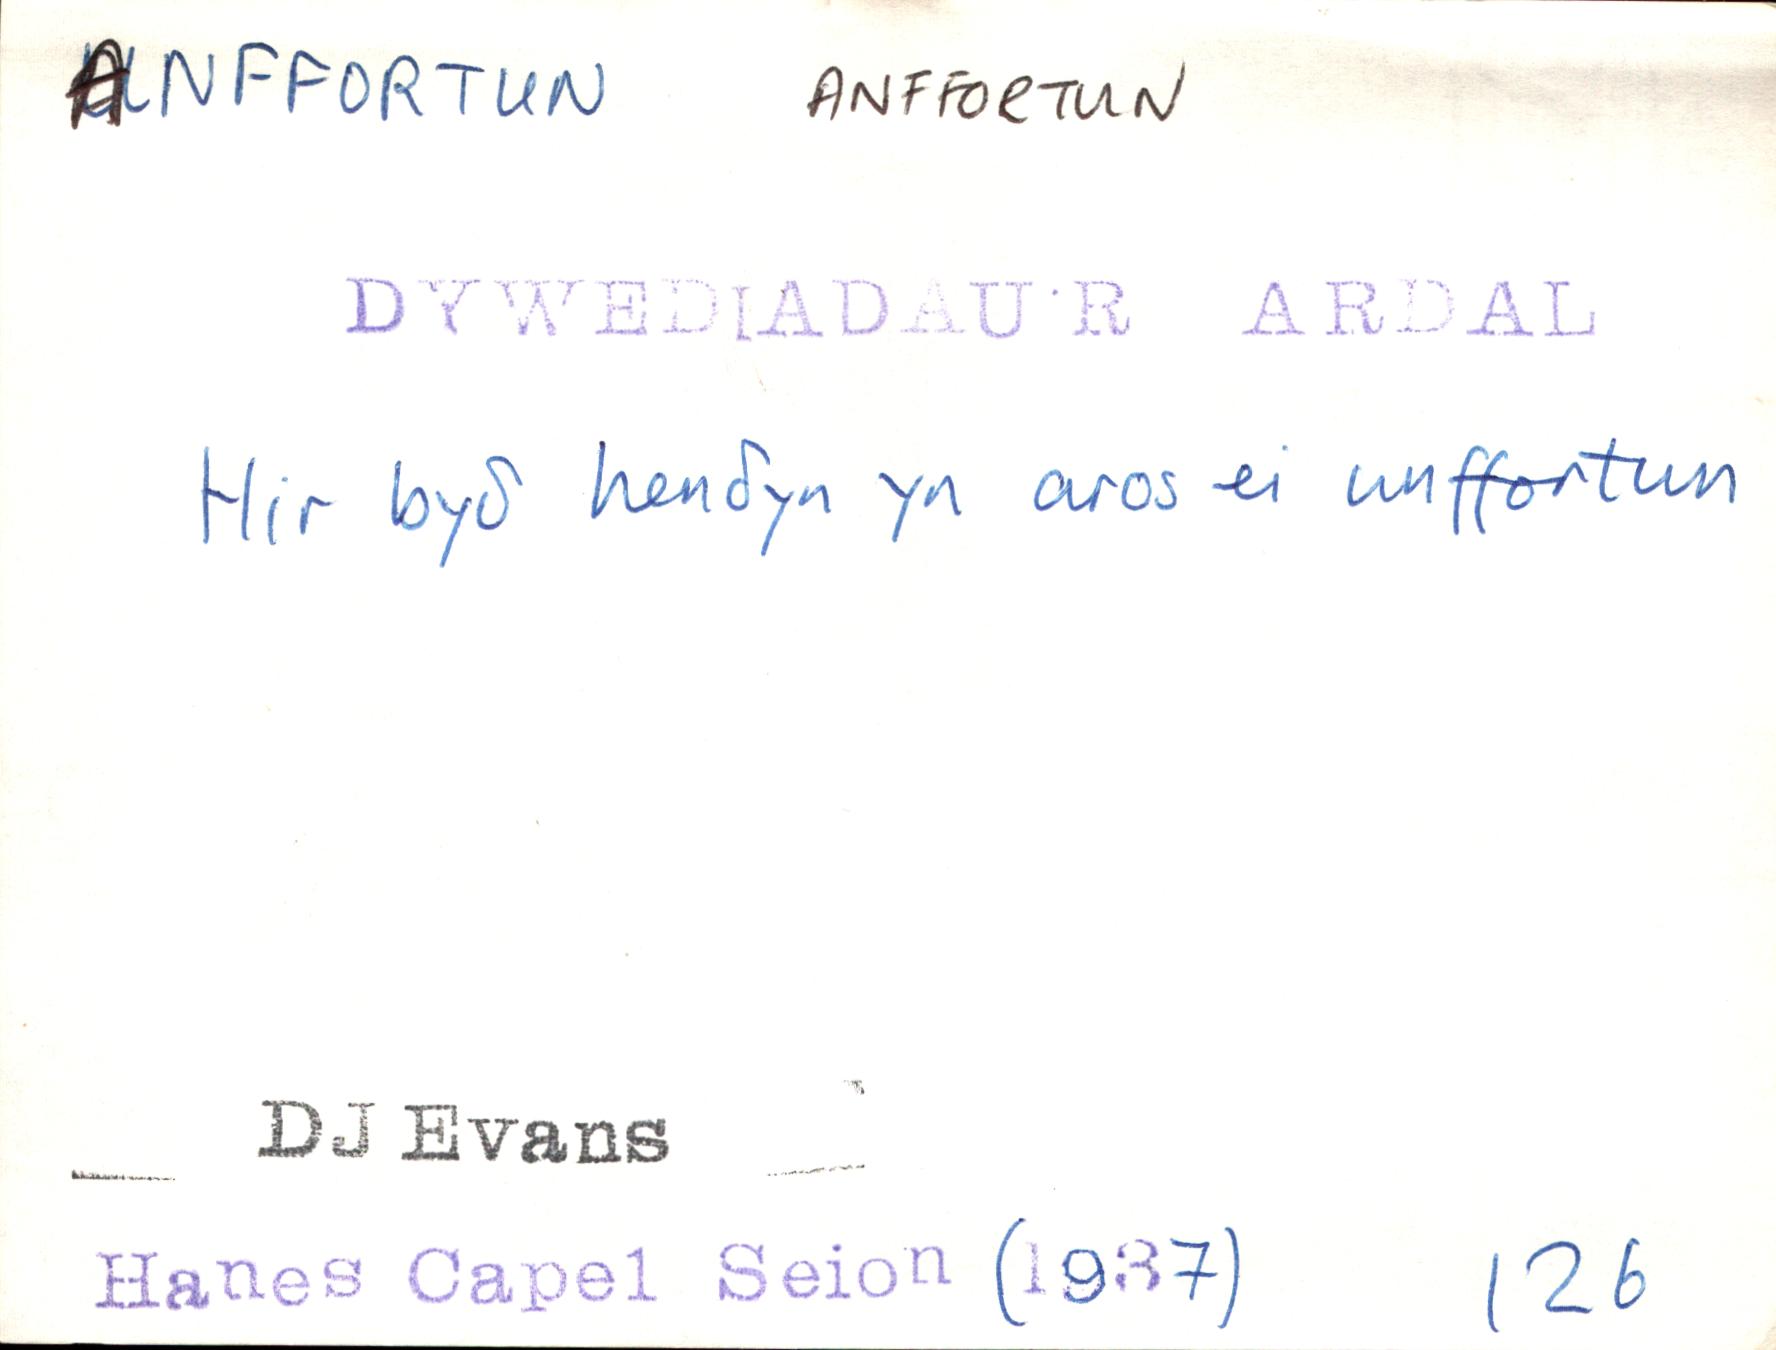 ANFFORTUN ANFFORTUN
DYWEDIADAU'R ARDAL
Hir byδ henδyn yn aros ei unffortun
DJ Evans
Hanes Capel Seion (1937) 126